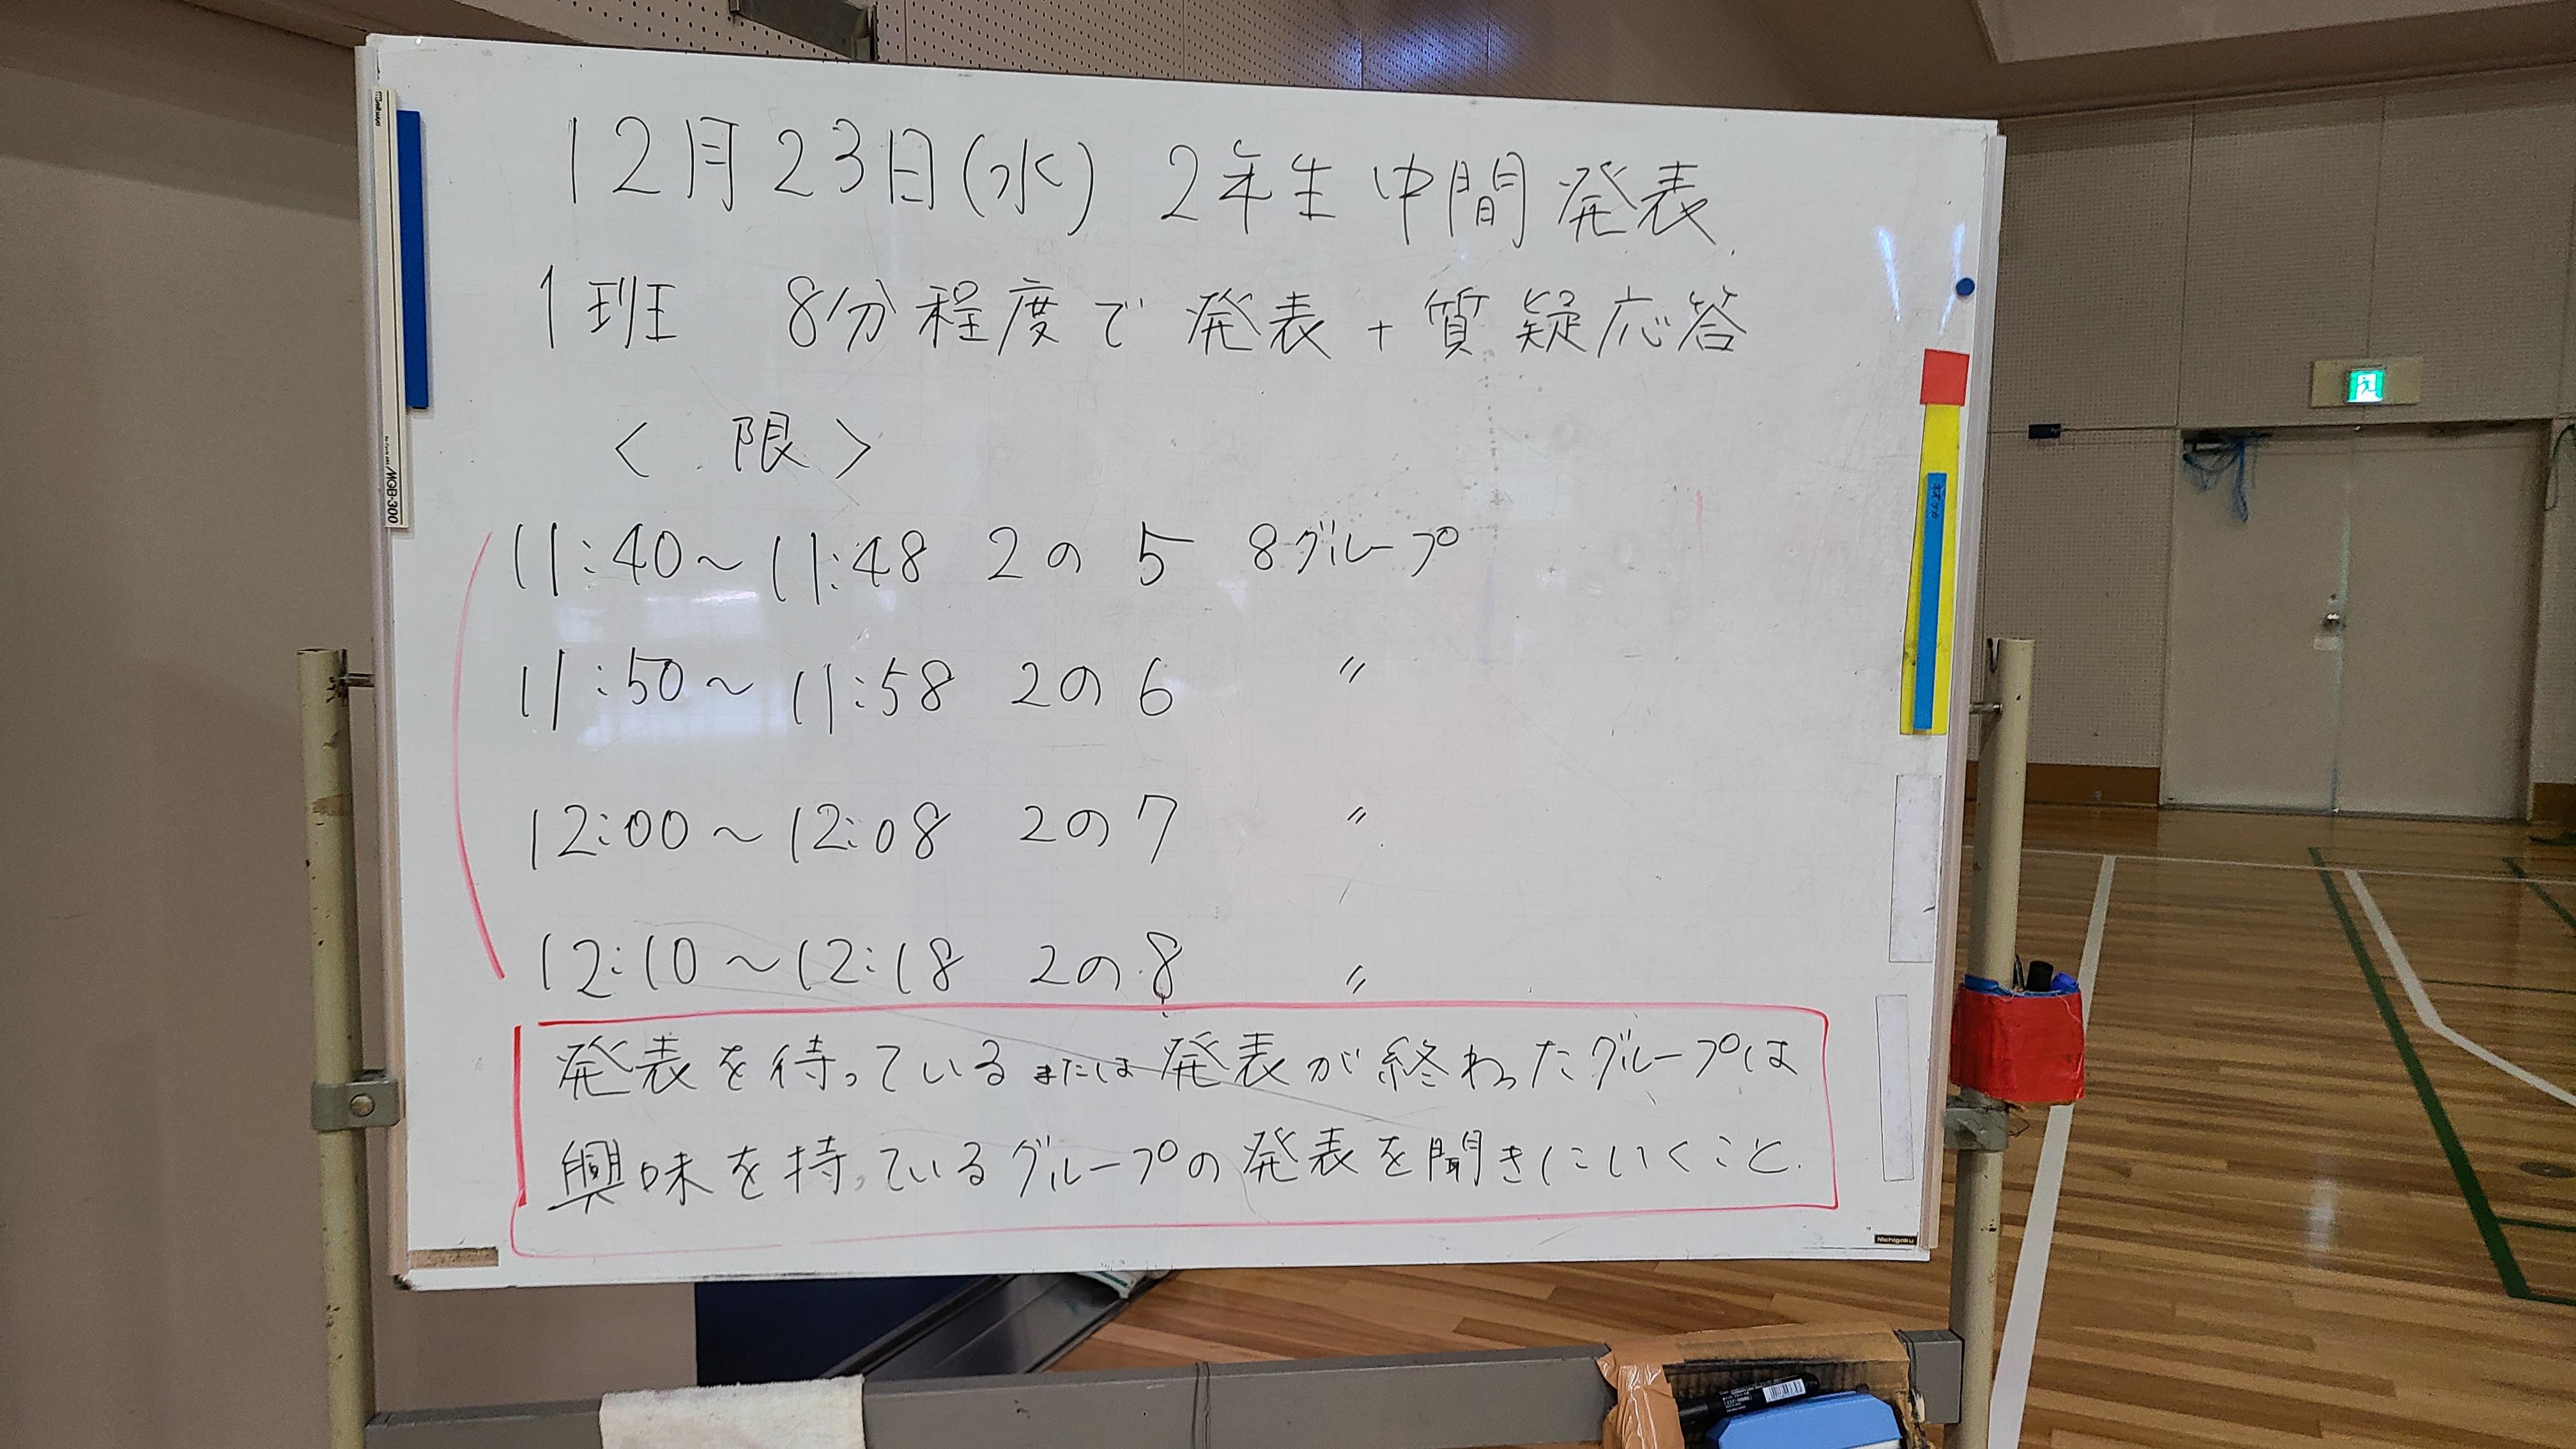 12月23日(水) 2年生 中間 発表
1班 8分程度で 発表 + 質疑応答
< 限>
11:40～11:48 2の 5 8グループ
11:50～11:58 2の6 〃
12:00～12:08 2の7 〃
12:10～12:18 2の8 〃
発表を待っている または 発表が終わったグループは
興味を持っているグループの発表を聞きにいくこと.
MGB-300
Nichigaku